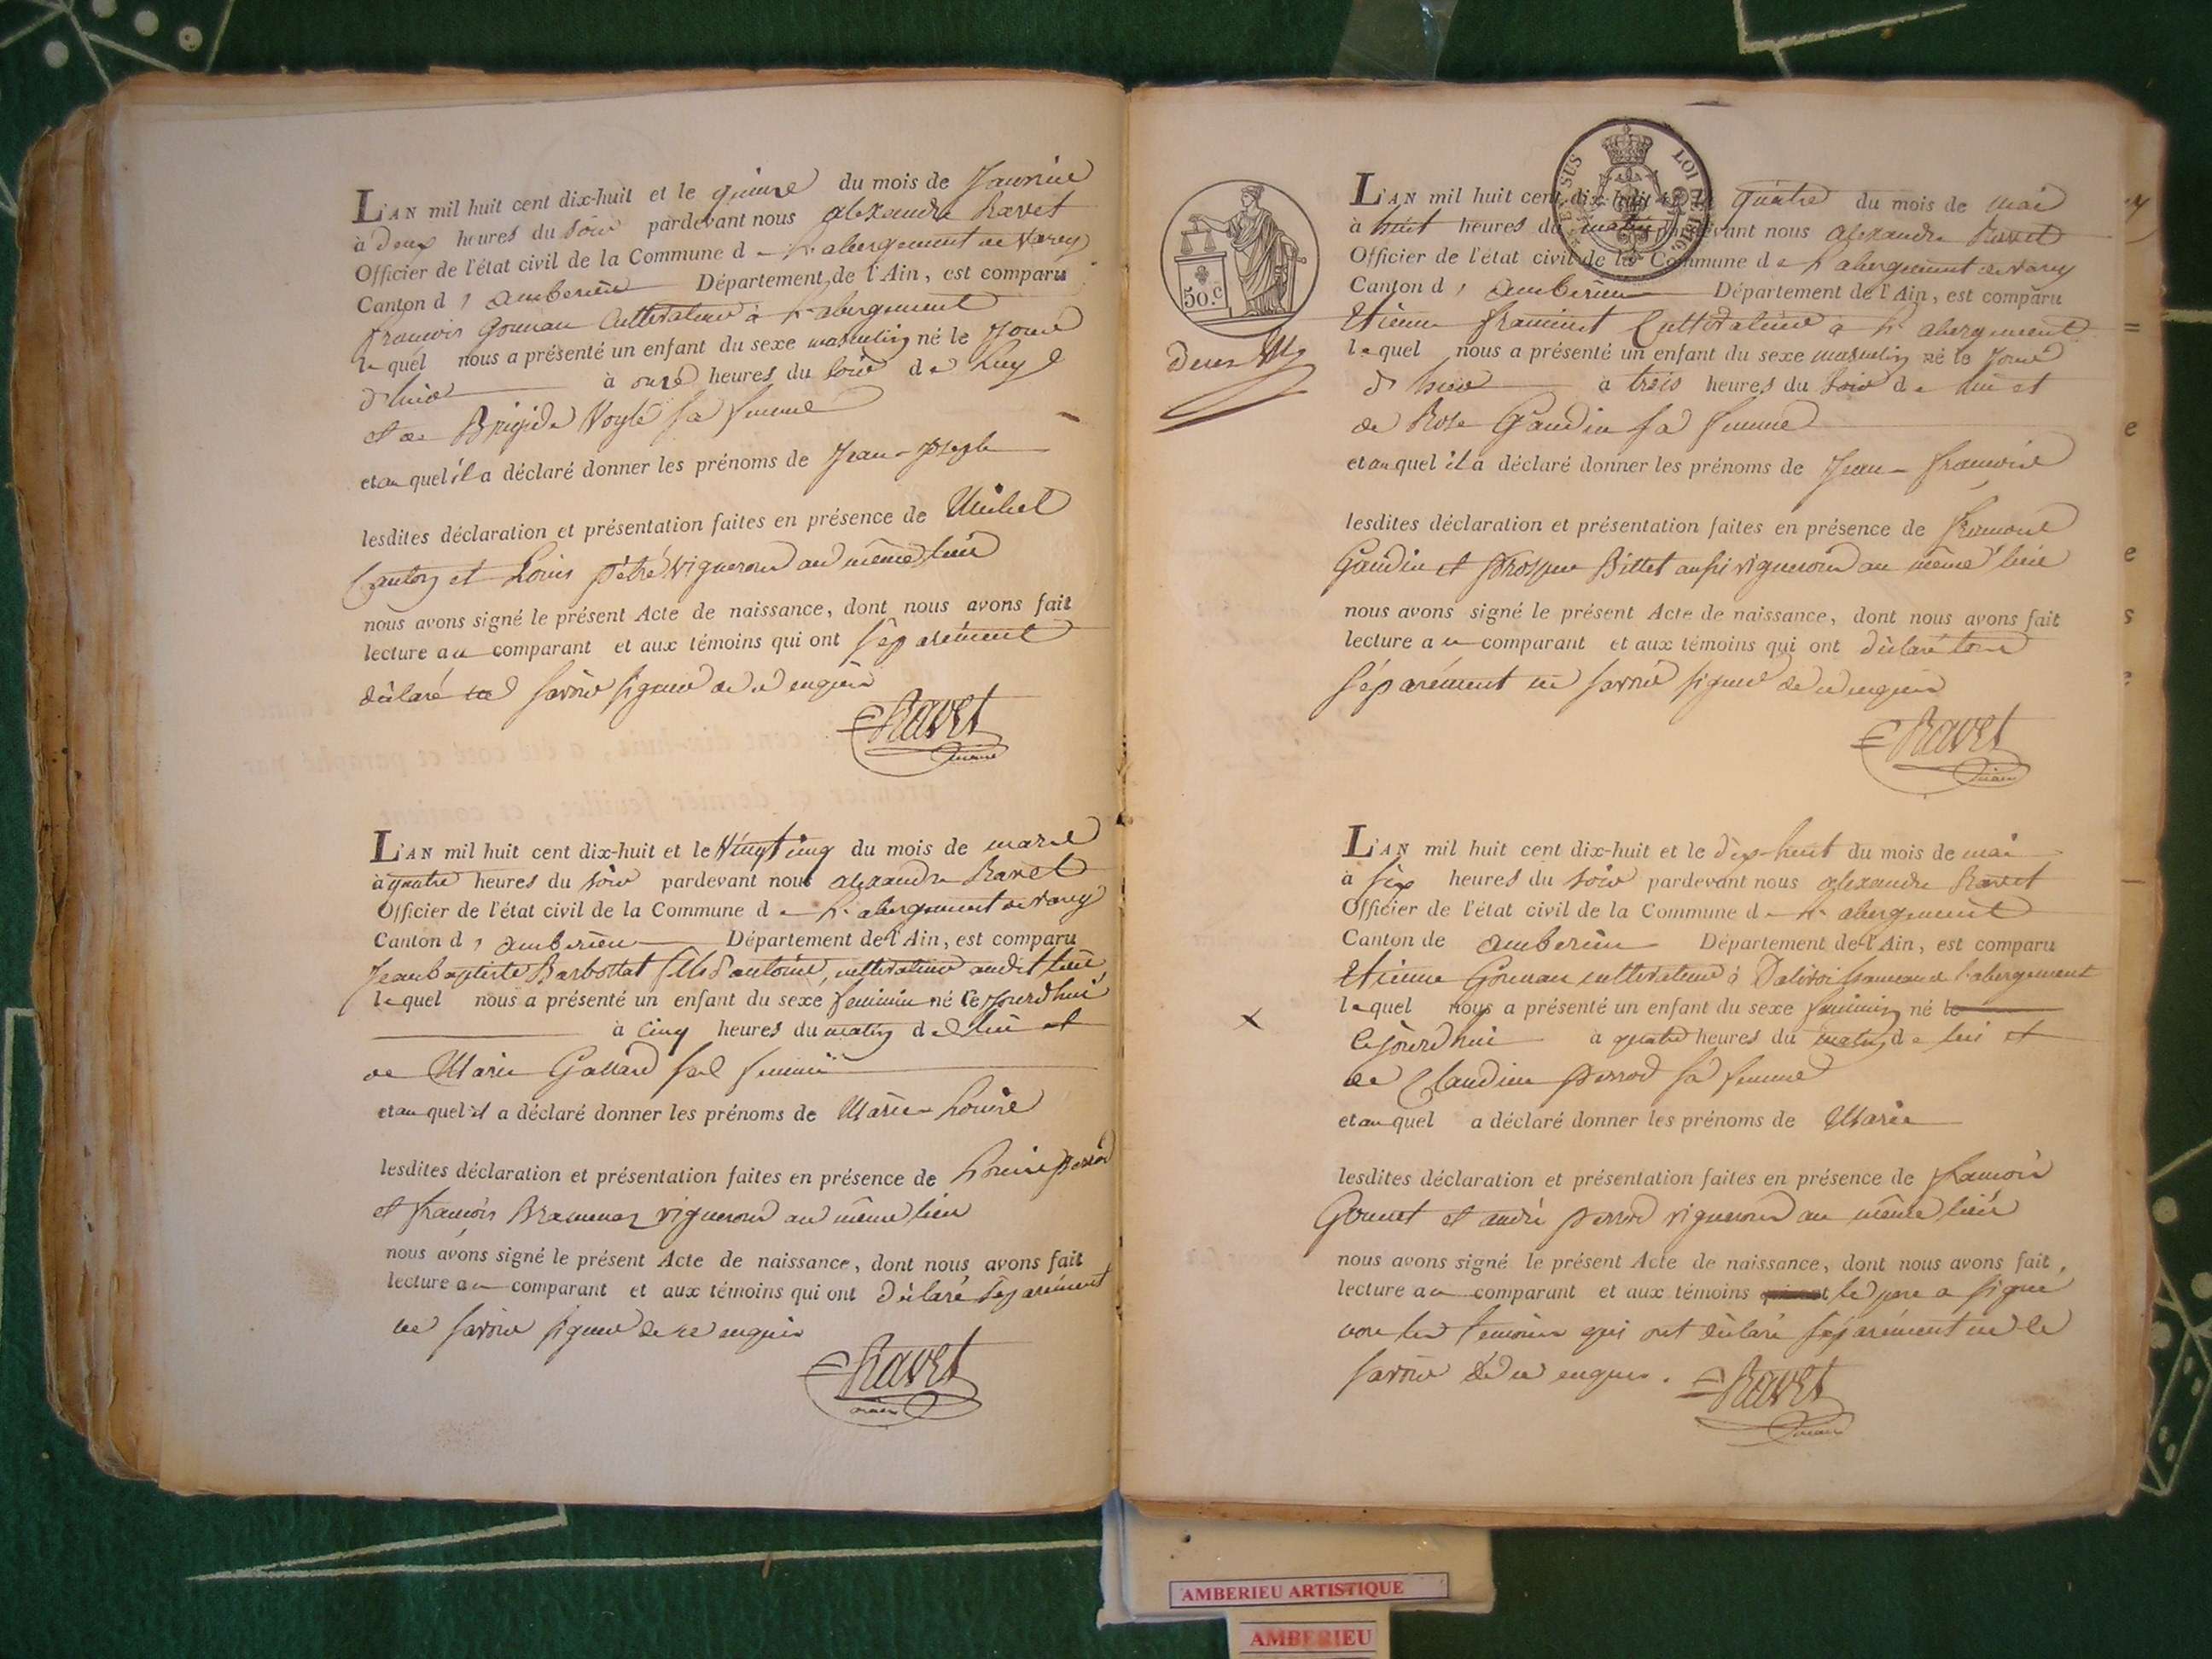 L'AN mil huit cent dix-huit et le quinze du mois de Janvier
à deux heures du soir pardevant nous alexandre Ravet
Officier de l'état civil de la Commune de L'abergement de Varey
Canton d'amberieu Département de l'Ain, est comparu
françois Gonnan Cultivateur à L'abergement
lequel nous a présenté un enfant du sexe masculin né le Jour
d'hier à onze heures du soir de luy
et de Brigide Voyle sa femme
et auquel il a déclaré donner les prénoms de Jean-Joseph
lesdites déclaration et présentation faites en présence de Michel
Cauton et Louis pétré vignerons au même lieu
nous avons signé le présent Acte de naissance, dont nous avons fait
lecture au comparant et aux témoins qui ont séparément
déclaré ne savoir signer de ce enquis
Ravet
maire
L'AN mil huit cent dix-huit et le Vingt cinq du mois de mars
à quatre heures du soir pardevant nous alexandre Ravet
Officier de l'état civil de la Commune de L'abergement de Varey
Canton d'amberieu Département de l'Ain, est comparu
Jean baptiste Barbollat fils d'antoine, cultivateur audit lieu
lequel nous a présenté un enfant du sexe feminin né cejourd'hui
à cinq heures du matin de lui et
de Marie Gallard sa femme
et auquel il a déclaré donner les prénoms de Marie-Louise
lesdites déclaration et présentation faites en présence de Louis perrod
et françois Bramenas vignerons au même lieu
nous avons signé le présent Acte de naissance, dont nous avons fait
lecture au comparant et aux témoins qui ont déclaré séparément
ne savoir signer de ce enquis
Ravet
maire
TIMBRE SUS LOI DE 1816
50.C
L'AN mil huit cent dix-huit et le quatre du mois de mai
à huit heures du matin pardevant nous alexandre Ravet
Officier de l'état civil de la Commune de L'abergement de Varey
Canton d'amberieu Département de l'Ain, est comparu
Etienne framinet Cultivateur à L'abergement
lequel nous a présenté un enfant du sexe masculin né le Jour
d'hier à trois heures du soir de lui et
de Rose Gaudin sa femme
et auquel il a déclaré donner les prénoms de Jean-françois
lesdites déclaration et présentation faites en présence de françois
Gaudin et prosper Billet aussi vignerons au même lieu
nous avons signé le présent Acte de naissance, dont nous avons fait
lecture au comparant et aux témoins qui ont déclaré tous
séparément ne savoir signer de ce enquis
Ravet
maire
L'AN mil huit cent dix-huit et le dix-huit du mois de mai
à six heures du soir pardevant nous alexandre Ravet
Officier de l'état civil de la Commune de L'abergement
Canton de amberieu Département de l'Ain, est comparu
Etienne Gonnan cultivateur à Dalivoi hameau de l'abergement
lequel nous a présenté un enfant du sexe feminin né le
Cejourd'hui à quatre heures du matin de lui et
de Claudine perrod sa femme
et auquel a déclaré donner les prénoms de Marie
lesdites déclaration et présentation faites en présence de francois
Gonnet et andré perrod vignerons au même lieu
nous avons signé le présent Acte de naissance, dont nous avons fait
lecture au comparant et aux témoins le pere a signé
non les temoins qui ont déclaré séparément ne le
savoir de ce enquis.
Ravet
maire
AMBERIEU ARTISTIQUE
AMBERIEU